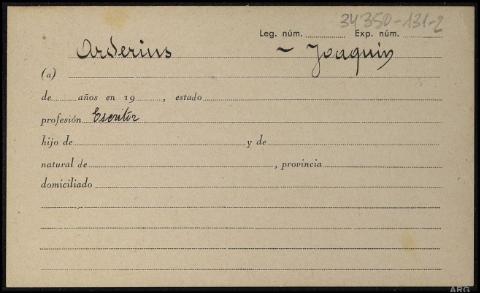 34350-131-2
Leg. núm. Exp. núm.
Arderius ~ Joaquin
(a)
de años en 19 , estado
profesión Escritor
hijo de y de
natural de , provincia
domiciliado
ARG